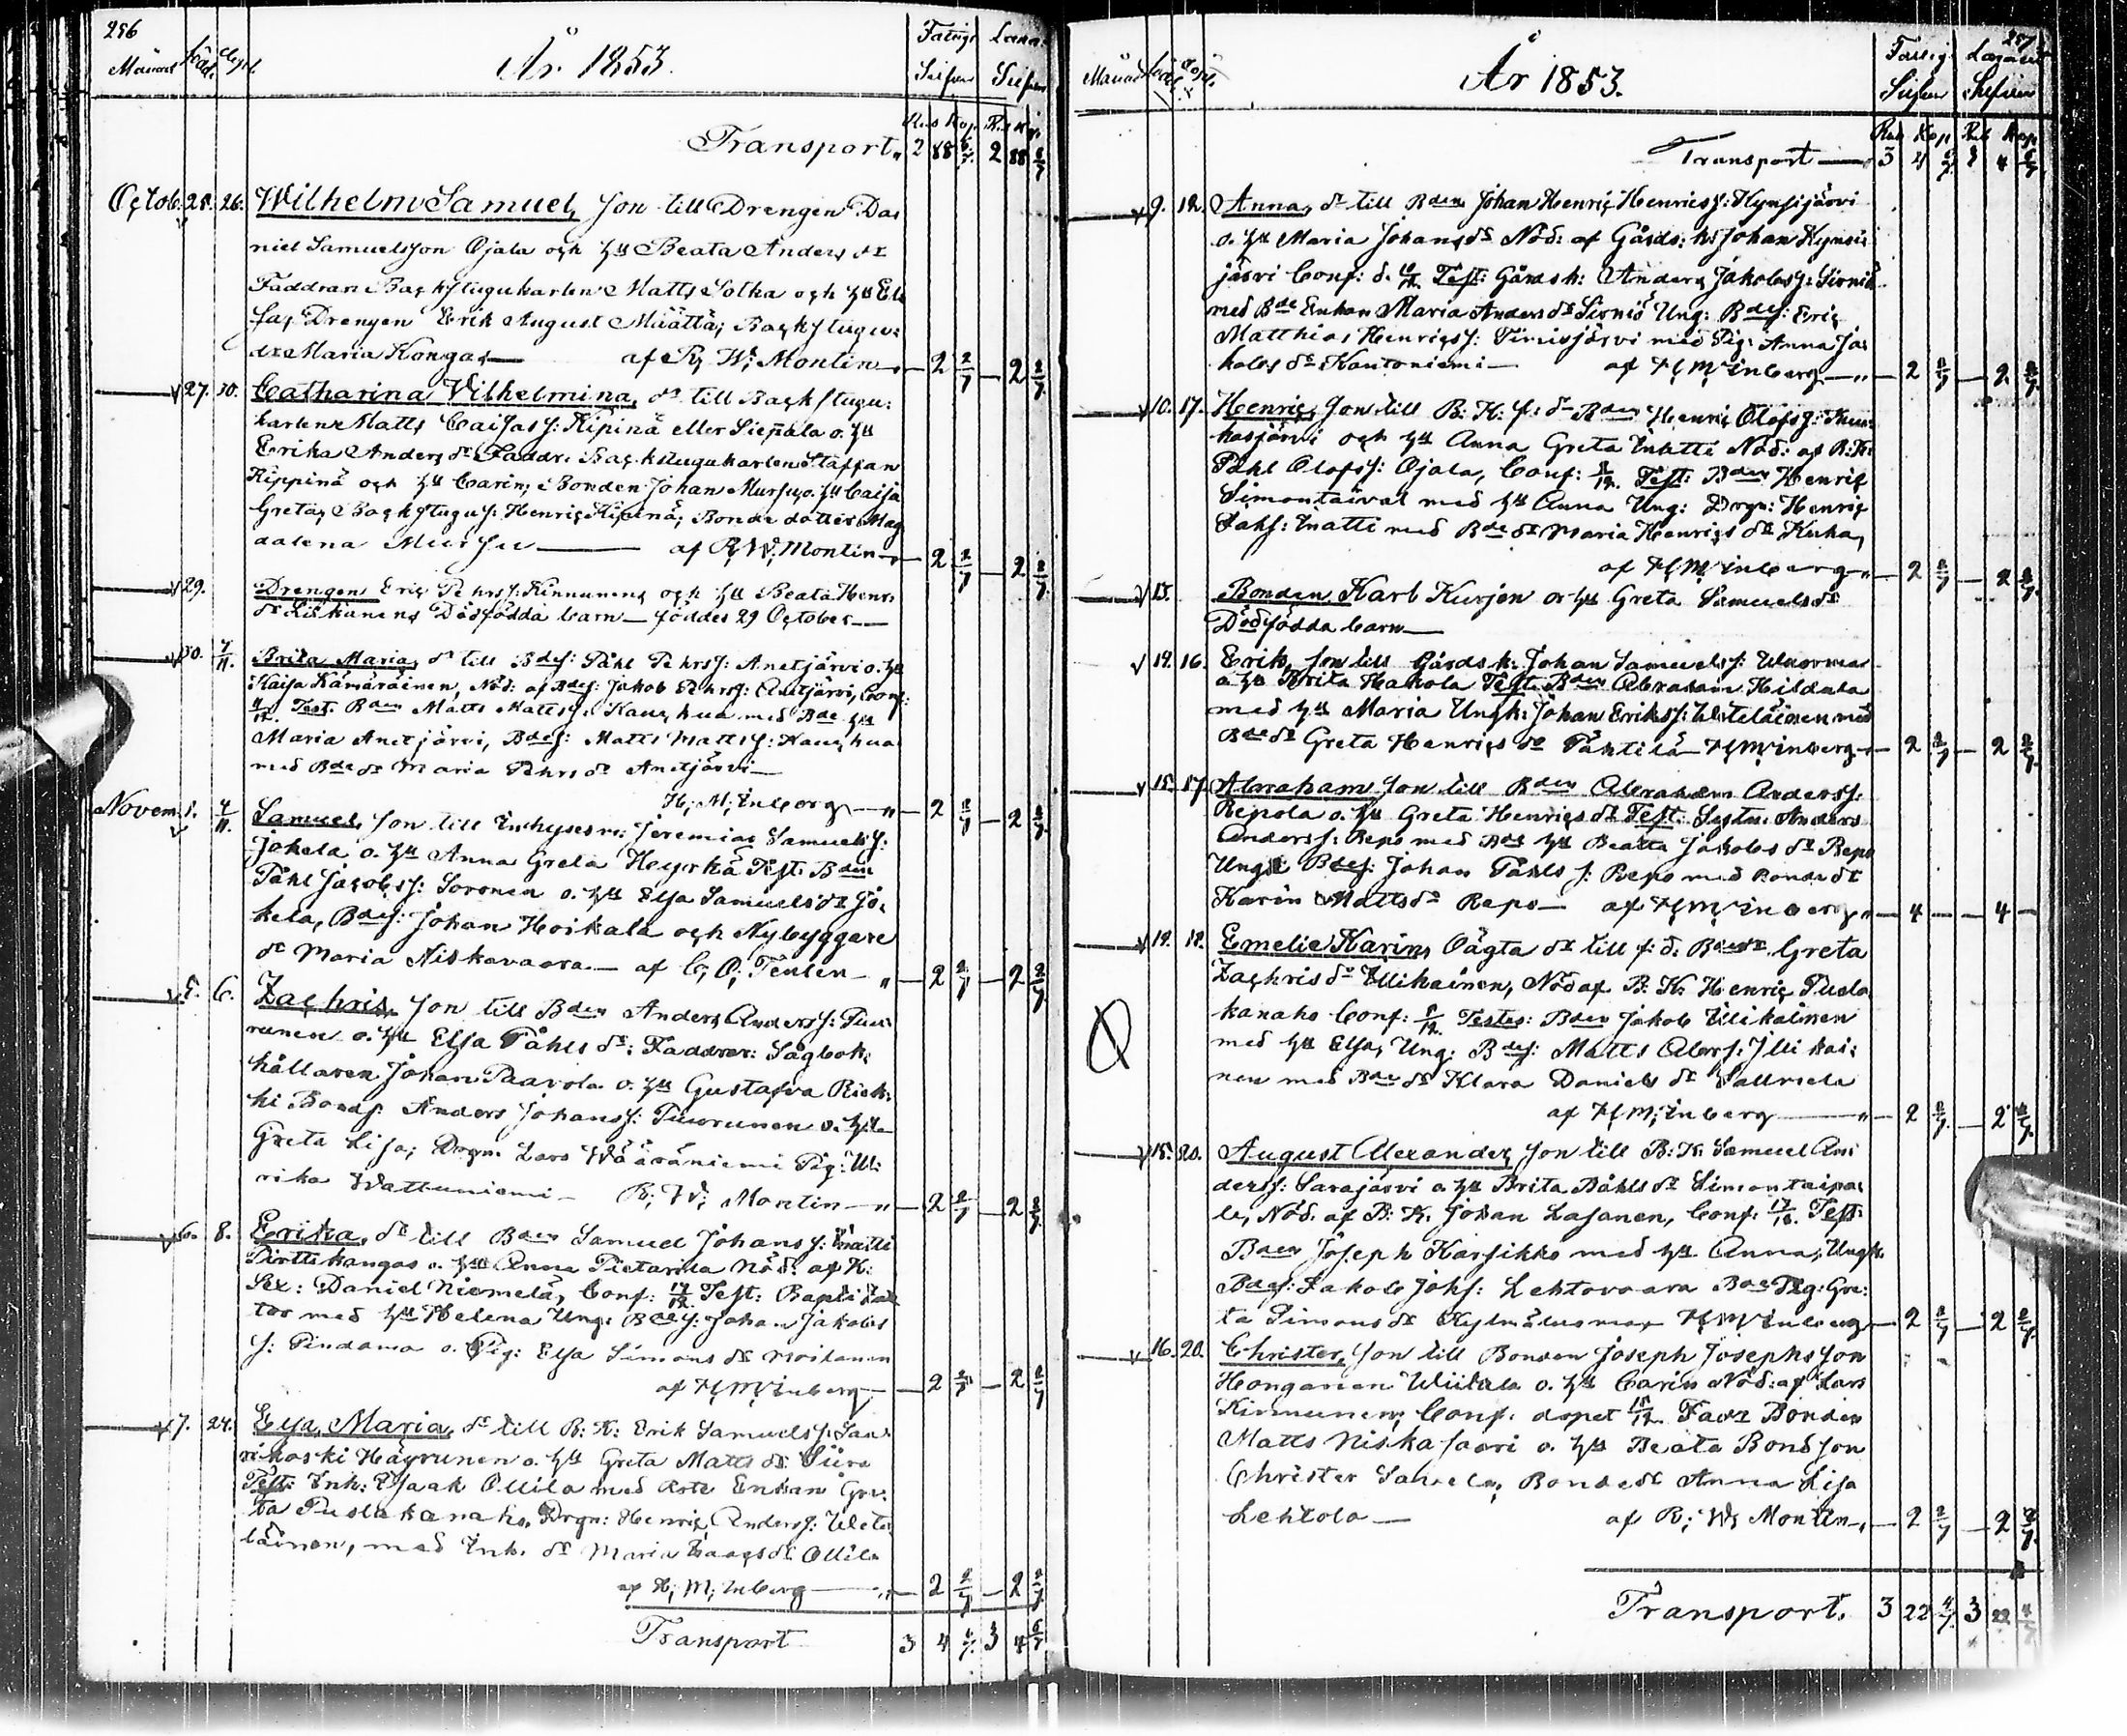 256
Månad Född. Döpt.
År 1853.
Fattigs Lasar.
Siffror Siffror
Rub Kop. R. Kop.
Transport „ 2 88 6/7 2 88 6/7
Octob. 25. 26. Wilhelm Samuel, son till Drengen Da=
niel Samuelsson Ojala och hu Beata Anders dr
Faddrar: Backstugukarlen Matts Sotka och hu El
sa, Drengen Erik August Määttä; Backstugu=
dr Maria Kongas — af R; W; Montin — 2 2/7 — 2 2/7
27. 30. Catharina Vilhelmina, dr till Backstugu=
karlen Matts Caisas s: Kipinä eller Siepala o. hu
Erika Anders dr Faddr. Backstugukarlen Staffan
Kippinä och hu Carin; Bonden Johan Mursu o. hu Caisa
Greta; Backstugu s: Henric Kipinä; Bonde dotter Mag
dalena Mursu — af R; W; Montin — 2 2/7 — 2 2/7
29. Drengen Eric Pehrs s: Kinnunens och hu Beata Henr:
dr Liikanens Dödfödda barn — föddes 29 October —
30. 4/11. Brita Maria, dr till Bdes: Påhl Pehrs s: Anetjärvi o. hu
Kaisa Kämäräinen, Nöd: af Bdes: Jakob Pehrs s: Anetjärvi, Conf:
4/12. Test. Bden Matts Matts s: Kauhua med Bde hu
Maria Anetjärvi, Bdes: Matts Matts s: Kauhua
med Bde dr Maria Pehrs dr Anetjärvi —
H; M; Inberg — „ — 2 2/7 — 2 2/7
Novem. 1. 4/11. Samuel, son till Inhyses m: Jeremias Samuels s:
Jokela o. hu Anna Greta Heyrkä Test: Bden
Påhl Jacobs s: Soronen o. hu Elsa Samuels dr Jo=
kela, Bdes: Johan Hoikala och Nybyggare
dr Maria Niskavaara — af C; O; Tenlen — „ — 2 2/7 — 2 2/7
5. 6. Zachris, son till Bden Anders Anders s: Puu
runen o. hu Elsa Påhls dr; Faddrar: Sågbok=
hållaren Johan Paavola o. hu Gustafva Riek=
ki Bonds. Anders Johans s: Puurunen o. hu
Greta Lisa; Drgn. Lars Wääräniemi Pig: Ul=
rika Wattuniemi — R; W; Montin — „ — 2 2/7 — 2 2/7
6. 8. Erika, dr till Bden Samuel Johans s: Inatti
Pirttikangas o. hu Anna Pietarila Nöd: af K:
Sex: Daniel Niemelä, Conf: 17/12. Test: Bapti za
tor med hu Helena Ung: Bdes: Johan Jakobs
s: Pindama o. Pig: Elsa Simons dr Moilanen
af H; M; Inberg — — 2 2/7 — 2 2/7
7. 24. Elsa Maria, dr till B: K: Erik Samuels s: Saa=
rikoski Häyrunen o. hu Greta Matts dr Siira
Test: Inh: Isaak Ollila med Rote Enkan Gre=
ta Pudakanaho, Drgn: Henric Anders s: Uete
läinen, med Inh. dr Maria Isaacs dr Ollila
af H; M; Inberg — „ — 2 2/7 — 2 2/7
Transport 3 4 6/7 3 4 6/7
257
Månad Född Döpt.
År 1853.
Fattig Lasar
Siffror Siffror
Rub Kop Rub Kop
Transport — 3 4 6/7 3 4 6/7
9. 12. Anna, dr till Bden Johan Henric Henrics s: Kynsijärvi
o. hu Maria Johans dr Nöd: af Gårds: k: Johan Kynsi
järvi Conf: d. 18/12. Test: Gårds k: Anders Jakobs s: Sirniö
med Bde Enkan Maria Anders dr Sirniö Ung: Bdes: Eric
Matthias Henrics s: Timisjärvi med Pig: Anna Ja=
kobs dr Kantoniemi — af H; M; Inberg — „ — 2 2/7 — 2 2/7
10. 17. Henric, son till B: K: f: d Bden Henric Olofs s: Kuu=
kasjärvi och hu Anna Greta Inatti Nöd: af B: K:
Påhl Olofs s: Ojala, Conf: 8/12. Test: Bden Henric
Simontaival med hu Anna Ung: Drgn: Henric
Isaks: Inatti med Bde dr Maria Henrics dr Kuha,
af H; M; Inberg „ — 2 2/7 — 2 2/7
13. Bonden Karl Kurjen o. hu Greta Samuels dr
Dödfödda barn —
12. 16. Erik, son till Gårds k: Johan Samuels s: Uusvmaa
o. hu Brita Hakola Test: Bden Abraham Hildala
med hu Maria Ungk: Johan Eriks s: Ueteläinen med
Bde dr Greta Henrics dr Pahtila H; M; Inberg — 2 2/7 — 2 2/7
15. 17. Abraham son till Bden Abraham Anders s:
Repola o. hu Greta Henrics dr Test: Sytn: Anders
Anders s: Repo med Bde hu Beatta Jakobs dr Repo
Ungk Bdes: Johan Påhls s: Repo med Bonde dr
Karin Matts dr Repo — af H; M; Inberg „ — 4 — — 4 —
12. 18. Emelie Karin, Oägta dr till f. d. Bde dr Greta
Zachris dr Illikainen, Nöd af B: K: Henric Pudas
kanaho Conf: 8/12. Testes: Bden Jakob Illikainen
med hu Elsa, Ung: Bdes: Matts Abr s: Illikai=
nen med Bde dr Klara Daniels dr Sallmela
af H; M; Inberg — „ — 2 2/7 — 2 2/7
15. 20. August Alexander, son till B: K: Samuel An=
ders s: Sarajärvi o. hu Brita Påhls dr Simontaipa=
le, Nöd. af B: K: Johan Lasanen, Conf: 17/12. Test:
Bden Joseph Karsikko med hu Anna; Ungk.
Bdes: Jakob Johs: Lehtovaara Bde Pig: Gre=
ta Simons dr Kylmäluoma H; M; Inberg — 2 2/7 — 2 2/7
16. 20. Christer, son till Bonden Joseph Josephsson
Honganen Wiitala o. hu Carin Nöd: af Lars
Kinnunen; Conf. dopet 18/12. Faddr Bonden
Matts Niskasaari o. hu Beata Bondson
Christer Sahala; Bonde dr Anna Lisa
Lehtola — af R; W; Montin „ — 2 2/7 — 2 2/7
Transport. 3 22 4/7 3 22 4/7